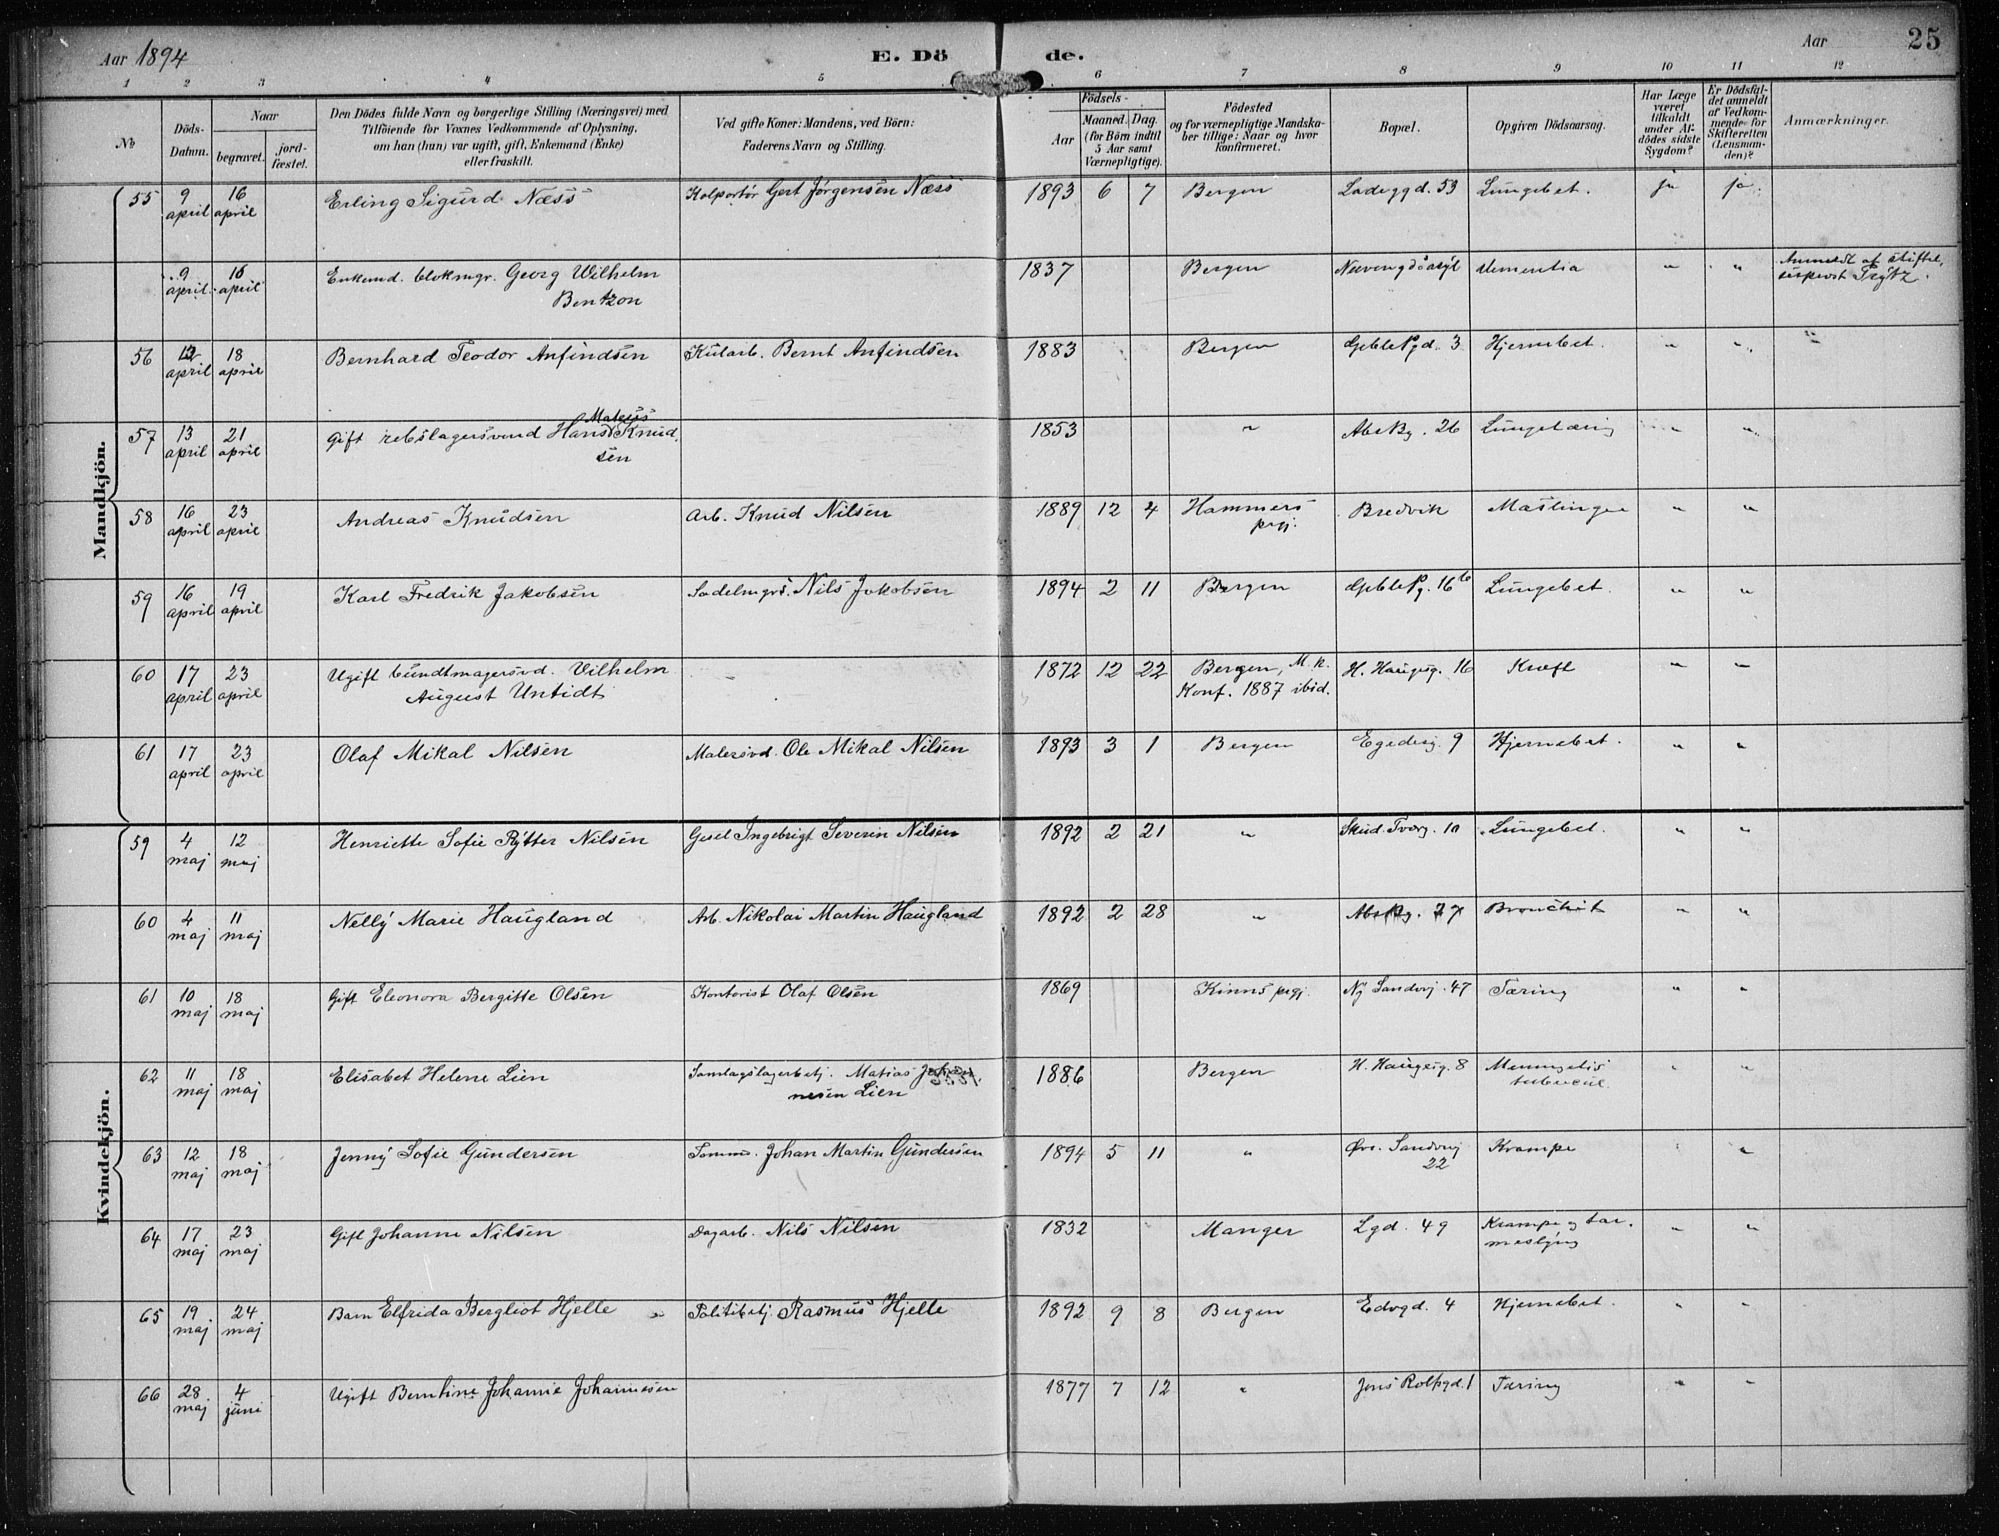 Aar 1894 E. Dö de. Aar 25
1 2 3 4 5 6 7 8 9 10 11 12
No
Döds-Datum.
Naar
begravet.
jord-fæstet.
Den Dödes fulde Navn og borgerlige Stilling (Næringsvei) med
Tilföiende for Voxnes Vedkommende af Oplysning,
om han (hun) var ugift, gift, Enkemand (Enke)
eller fraskilt.
Ved gifte Koner: Mandens, ved Börn:
Faderens Navn og Stilling.
Födsels-
Aar
Maaned. Dag.
(for Börn indtil
5 Aar samt
Værnepligtige).
Födested
og for værnepligtige Mandska-
ber tillige: Naar og hvor
konfirmeret.
Bopæl.
Opgiven Dödsaarsag.
Har Læge
været
tilkaldt
under Af-
dödes sidste
Sygdom?
Er Dödsfal-
det anmeldt
af Vedkom-
mende for
Skifteretten
(Lensman-
den)?
Anmærkninger.
Mandkjön.
55 9 april 16 april Erling Sigurd Næss Kolportør Gert Jörgensen Næss 1893 6 7 Bergen Ladeggd. 53 Lungebet. ja ja.
9 april 16 april Enkemd. blokmgr. Georg Wilhelm 1837 Bergen dementia " " Anmeldt af stiftel,
Bentzon
56 april 18 april Bernhard Teodor Anfindsen Kularb. Bernt Anfindsen 1883 Bergen 3 Hjernebet. " " "
57 13 april 21 april Gift rebslagersvend Hans Matias Knud 1853 " 26 Lungetæring " "
sen
58 16 april 23 april Andreas Knudsen Arb. Knud Nilsen 1889 12 4 Hammers Bredvik Mæslinger " "
prgj.
59 16 april 19 april Karl Fredrik Jakobsen Sadelmgrs. Nils Jakobsen 1894 2 11 Bergen 16 b Lungebet. " "
60 17 april 23 april Ugift bundtmagersvd. Vilhelm 1872 12 22 Bergen, M.k. H. Haugesg. 16 Kræft " "
August Untidt Konf. 1887 ibid.
61 17 april 23 april Olaf Mikal Nilsen Malersvd. Ole Mikal Nilsen 1893 3 1 Bergen Egedesg. 9 Hjernebet. " "
Kvindekjön.
59 4 maj 12 maj Henriette Sofie Rytter Nilsen Gesel Ingebrigt Severin Nilsen 1892 2 21 " Skud. Tverg. 10 Lungebet. " "
60 4 maj 11 maj Nelly Marie Haugland Arb. Nikolai Martin Haugland 1892 2 28 " 27 Bronchit " "
61 10 maj 18 maj Gift Eleonora Bergitte Olsen Kontorist Olaf Olsen 1869 Kinns prgj. Ny Sandvg. 47 Tæring " "
62 11 maj 18 maj Elisabet Helene Lien Samlagslagerbetj. Matias Johan- 1886 Bergen H. Haugesg. 8 Meningetis " "
nesen Lien tubercul.
63 12 maj 18 maj Jenny Sofie Gundersen Tømm. Johan Martin Gundersen 1894 5 11 " Øvr. Sandvg Krampe " "
22
64 17 maj 23 maj Gift Johanne Nilsen Dagarb. Nils Nilsen 1832 Manger Lgd. 49 Krampe og tar- " "
meslyng
65 19 maj 24 maj Barn Elfrida Bergliot Hjelle Politibetj. Rasmus Hjelle 1892 9 8 Bergen Edvgd. 4 Hjernebet. " "
66 28 maj 4 juni Ugift Berntine Johanne Johannesen 1877 7 12 " Jons Rolfsgd. 1 Tæring " "